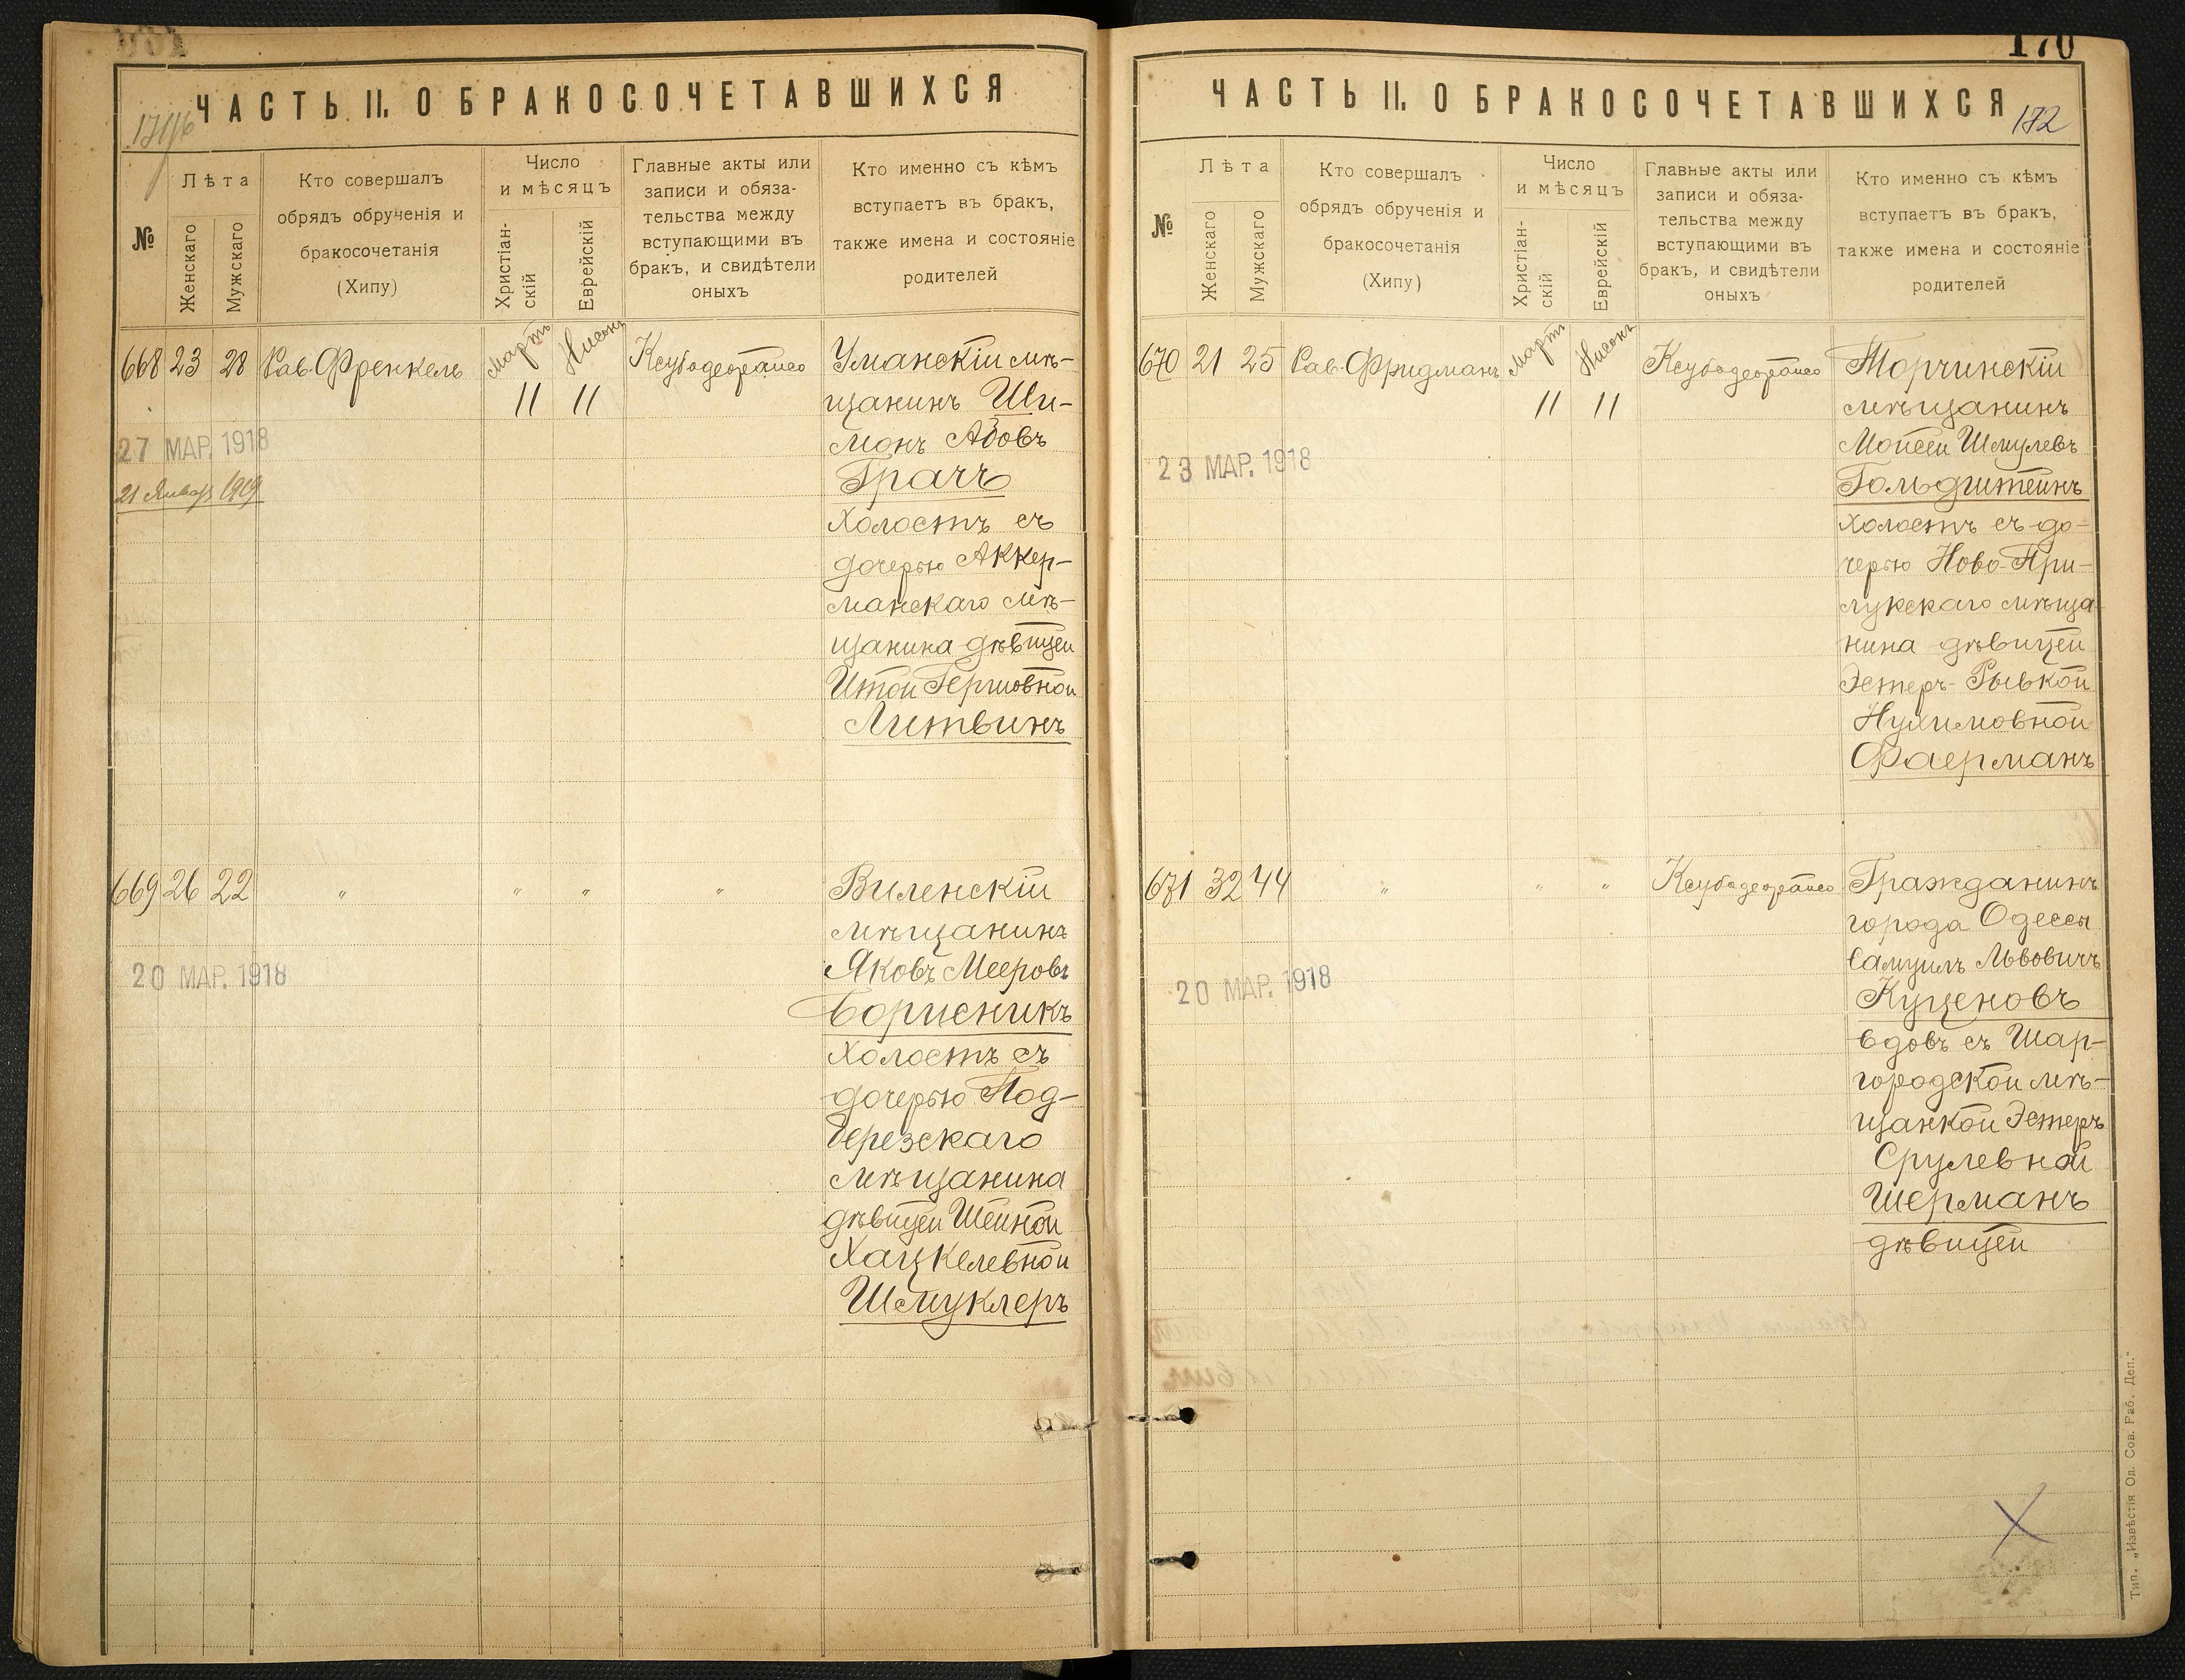 ЧАСТЬ II. О БРАКОСОЧЕТАВШИХСЯ
№
Лѣта
Женскаго
Мужскаго
Кто совершалъ
обрядъ обрученія и
бракосочетанія
(Хипу)
Число
и мѣсяцъ
Христіан-
скій
Еврейскій
Главные акты или
записи и обяза-
тельства между
вступающими въ
бракъ, и свидѣтели
оныхъ
Кто именно съ кѣмъ
вступаетъ въ бракъ,
также имена и состояніе
родителей
668 23 28 Рав. Френкель Мартъ Нисонъ
11 11
27 МАР. 1918
21 Января 1919
Уманскій мѣ-
щанинъ Ши-
монъ
Грачъ
холостъ съ
дочерью Аккер-
манскаго мѣ-
щанина дѣвицей
Итой Гершовной
Литвинъ
669 26 22 " " " "
20 МАР. 1918
Виленскій
мѣщанинъ
Яковъ Мееровъ
Борисникъ
холостъ съ
дочерью Под-
березскаго
мѣщанина
дѣвицей Шейной
Хацкелевной
Шмуклеръ
170
ЧАСТЬ II. О БРАКОСОЧЕТАВШИХСЯ
172
№
Лѣта
Женскаго
Мужскаго
Кто совершалъ
обрядъ обрученія и
бракосочетанія
(Хипу)
Число
и мѣсяцъ
Христіан-
скій
Еврейскій
Главные акты или
записи и обяза-
тельства между
вступающими въ
бракъ, и свидѣтели
оныхъ
Кто именно съ кѣмъ
вступаетъ въ бракъ,
также имена и состояніе
родителей
670 21 25 Рав. Фридманъ Мартъ Нисонъ
11 11
23 МАР. 1918
Торчинскій
мѣщанинъ
Мойсей Шмулевъ
Гольдштейнъ
холостъ съ до-
черью Ново-При-
лукскаго мѣща-
нина дѣвицей
Эстеръ-Рывкой
Нухимовной
Фаерманъ
671 32 44 " " "
20 МАР. 1918
Гражданинъ
города Одессы
Самуилъ Львовичъ
Куценовъ
вдовъ съ Шар-
городской мѣ-
щанкой Эстеръ
Срулевной
Шерманъ
дѣвицей
Тип. „Извѣстія Од. Сов. Раб. Деп."